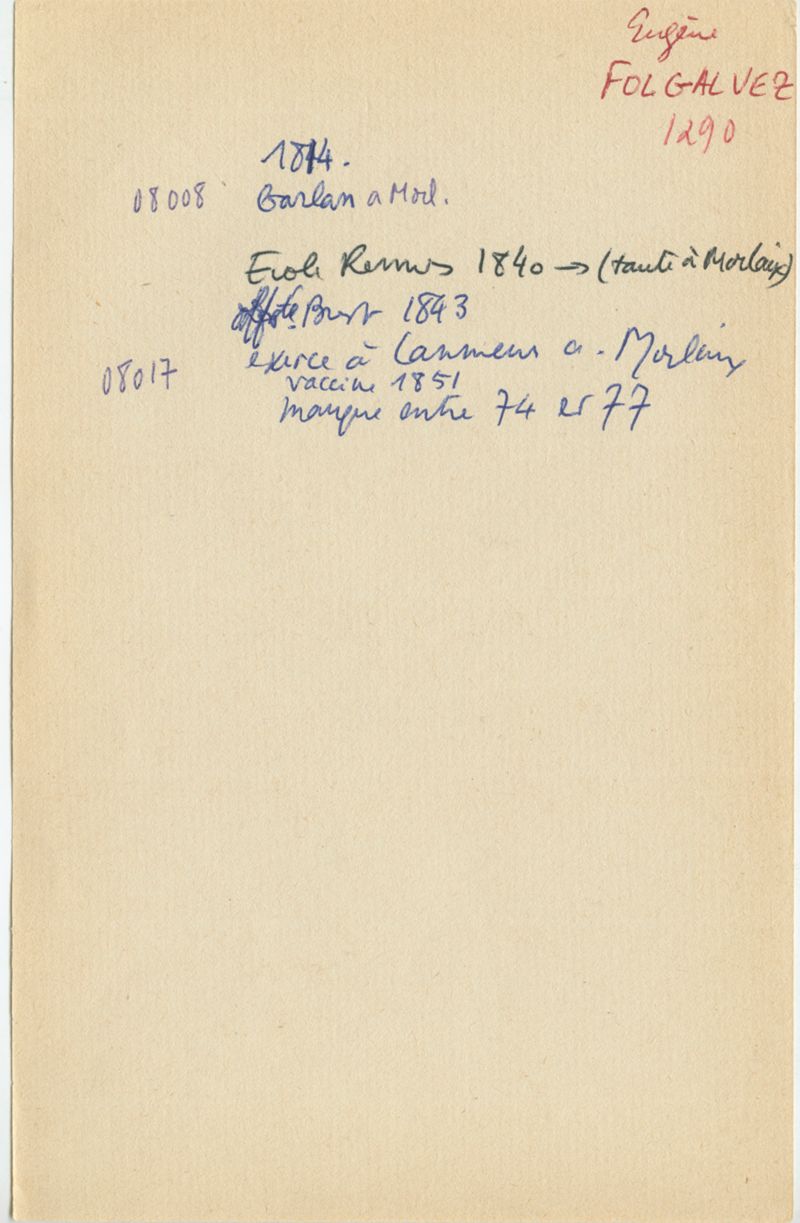 Eugène
FOLGALVEZ
1290
1814.
08008 Garlan a Morl.
Ecole Rennes 1840 → (tauté à Morlaix)
Brest 1843
exerce à Lanmeur a. Morlaix
08017
vaccine 1851
manque entre 74 et 77